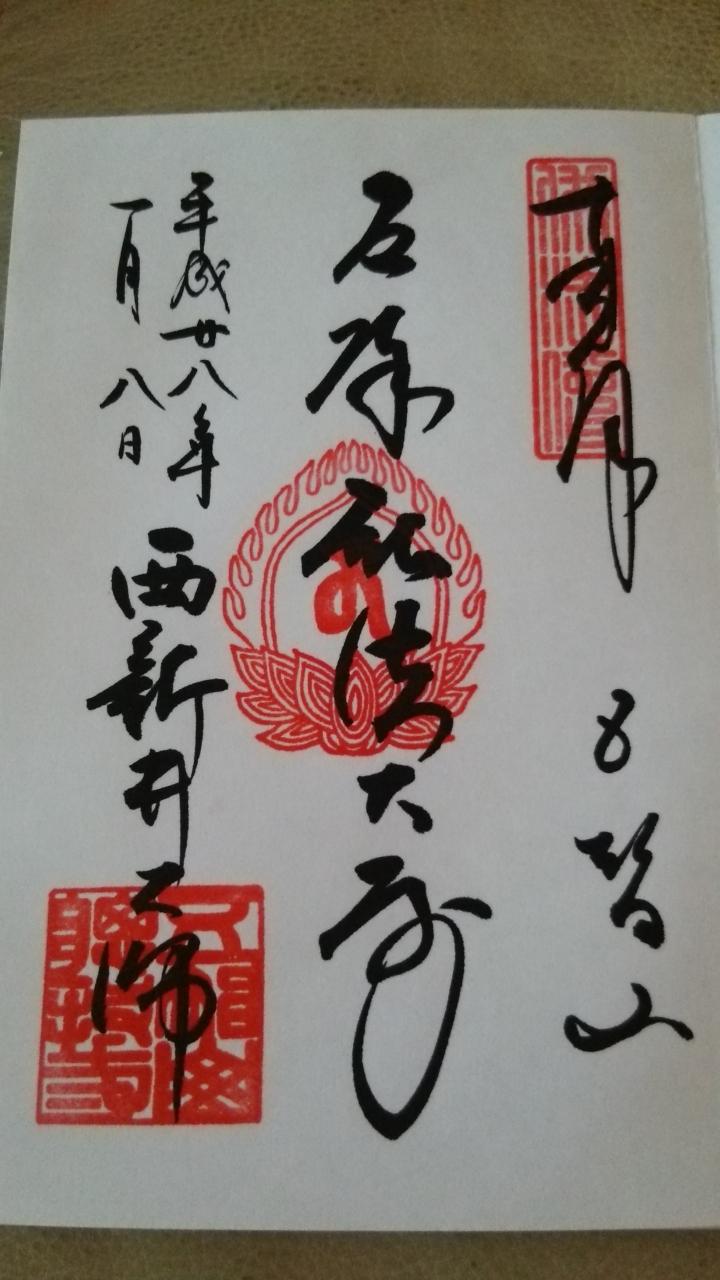 奉拝
五智山
厄除弘法大師
平成廿八年
一月八日
西新井大師
五智山
總持寺